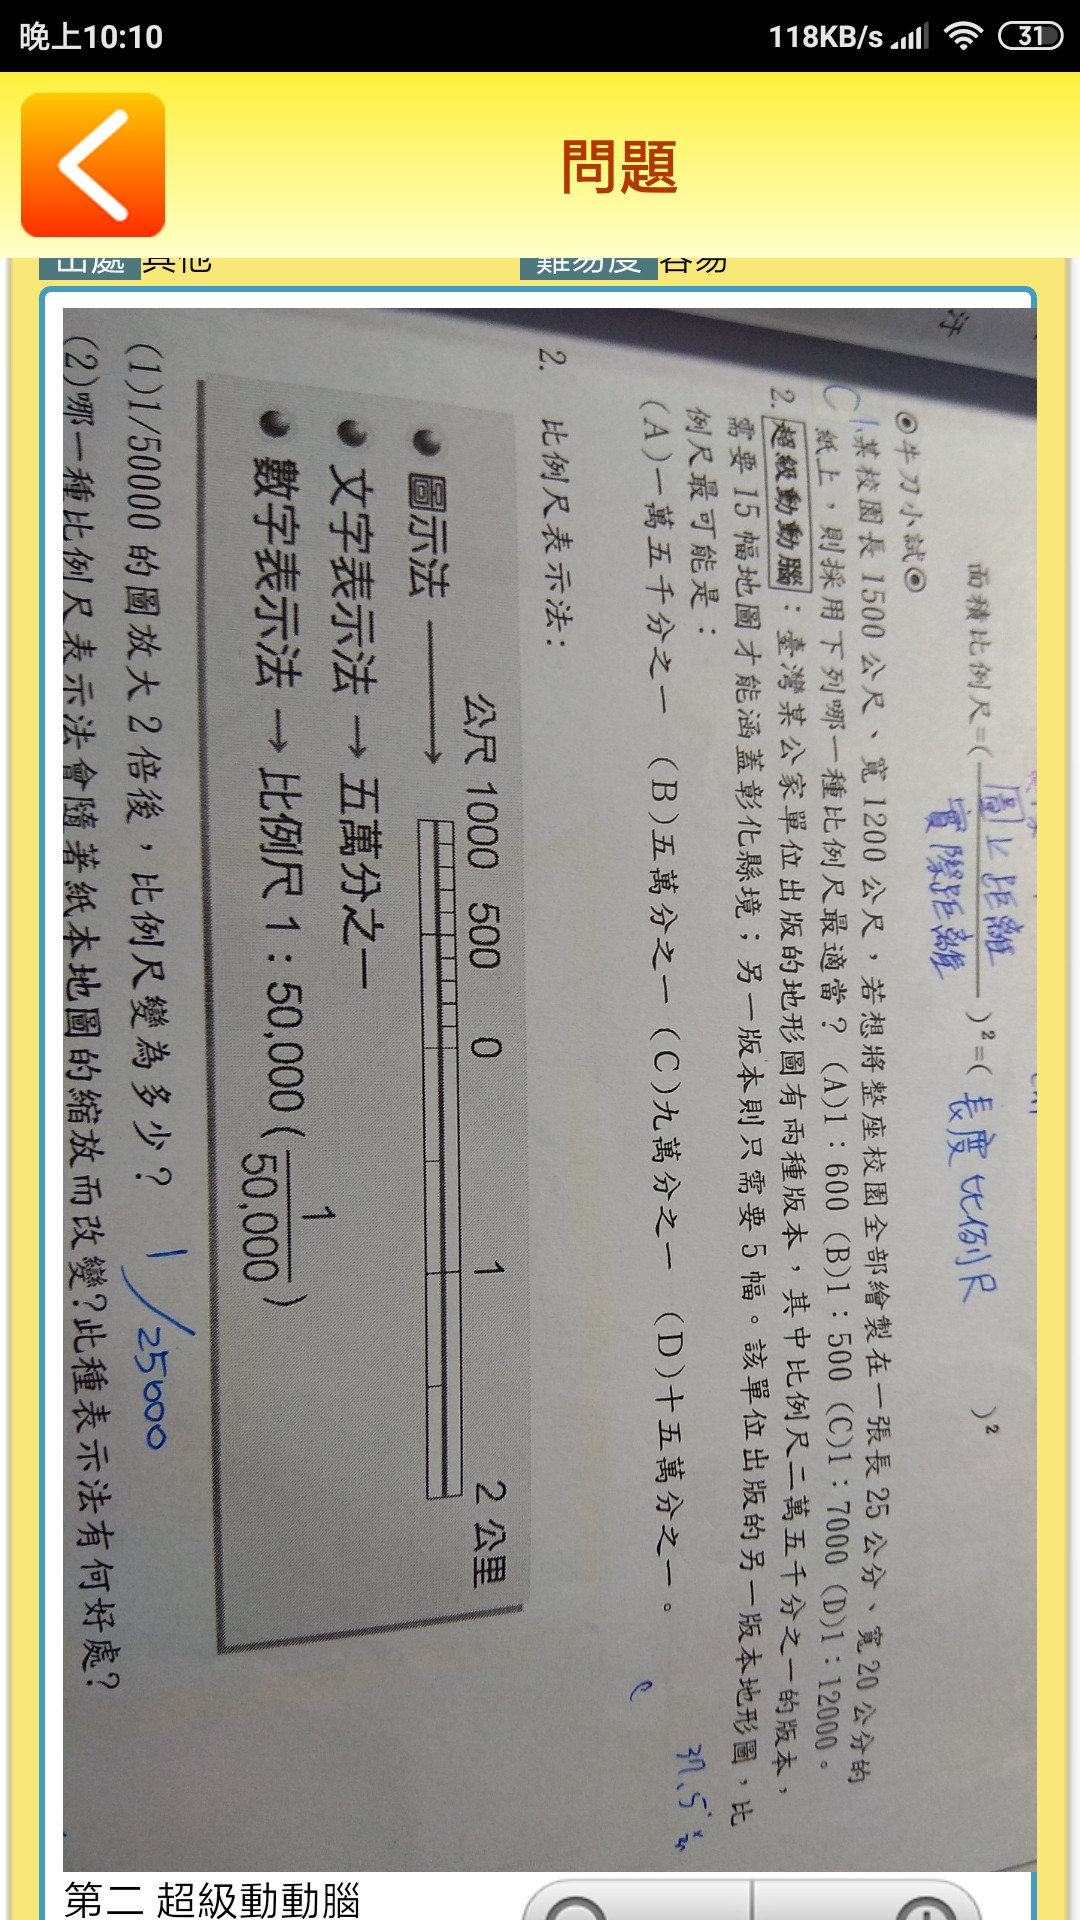 晚上10:10
118KB/s
31
問題
出處 其他
難易度 容易
汙
面積比例尺=(圖上距離/實際距離)²=(長度比例尺)²
◎牛刀小試◎
C 1.某校園長1500公尺、寬1200公尺，若想將整座校園全部繪製在一張長25公分、寬20公分的
紙上，則採用下列哪一種比例尺最適當？(A)1：600 (B)1：500 (C)1：7000 (D)1：12000。
2.超級動動腦：臺灣某公家單位出版的地形圖有兩種版本，其中比例尺二萬五千分之一的版本，
需要15幅地圖才能涵蓋彰化縣境；另一版本則只需要5幅。該單位出版的另一版本地形圖，比
例尺最可能是：
(A)一萬五千分之一 (B)五萬分之一 (C)九萬分之一 (D)十五萬分之一。
2. 比例尺表示法：
公尺 1000 500 0 1 2 公里
●圖示法
●文字表示法→五萬分之一
●數字表示法→比例尺 1：50,000 (1/50,000)
(1)1/50000的圖放大2倍後，比例尺變為多少？ 1/25000
(2)哪一種比例尺表示法會隨著紙本地圖的縮放而改變?此種表示法有何好處?
第二 超級動動腦